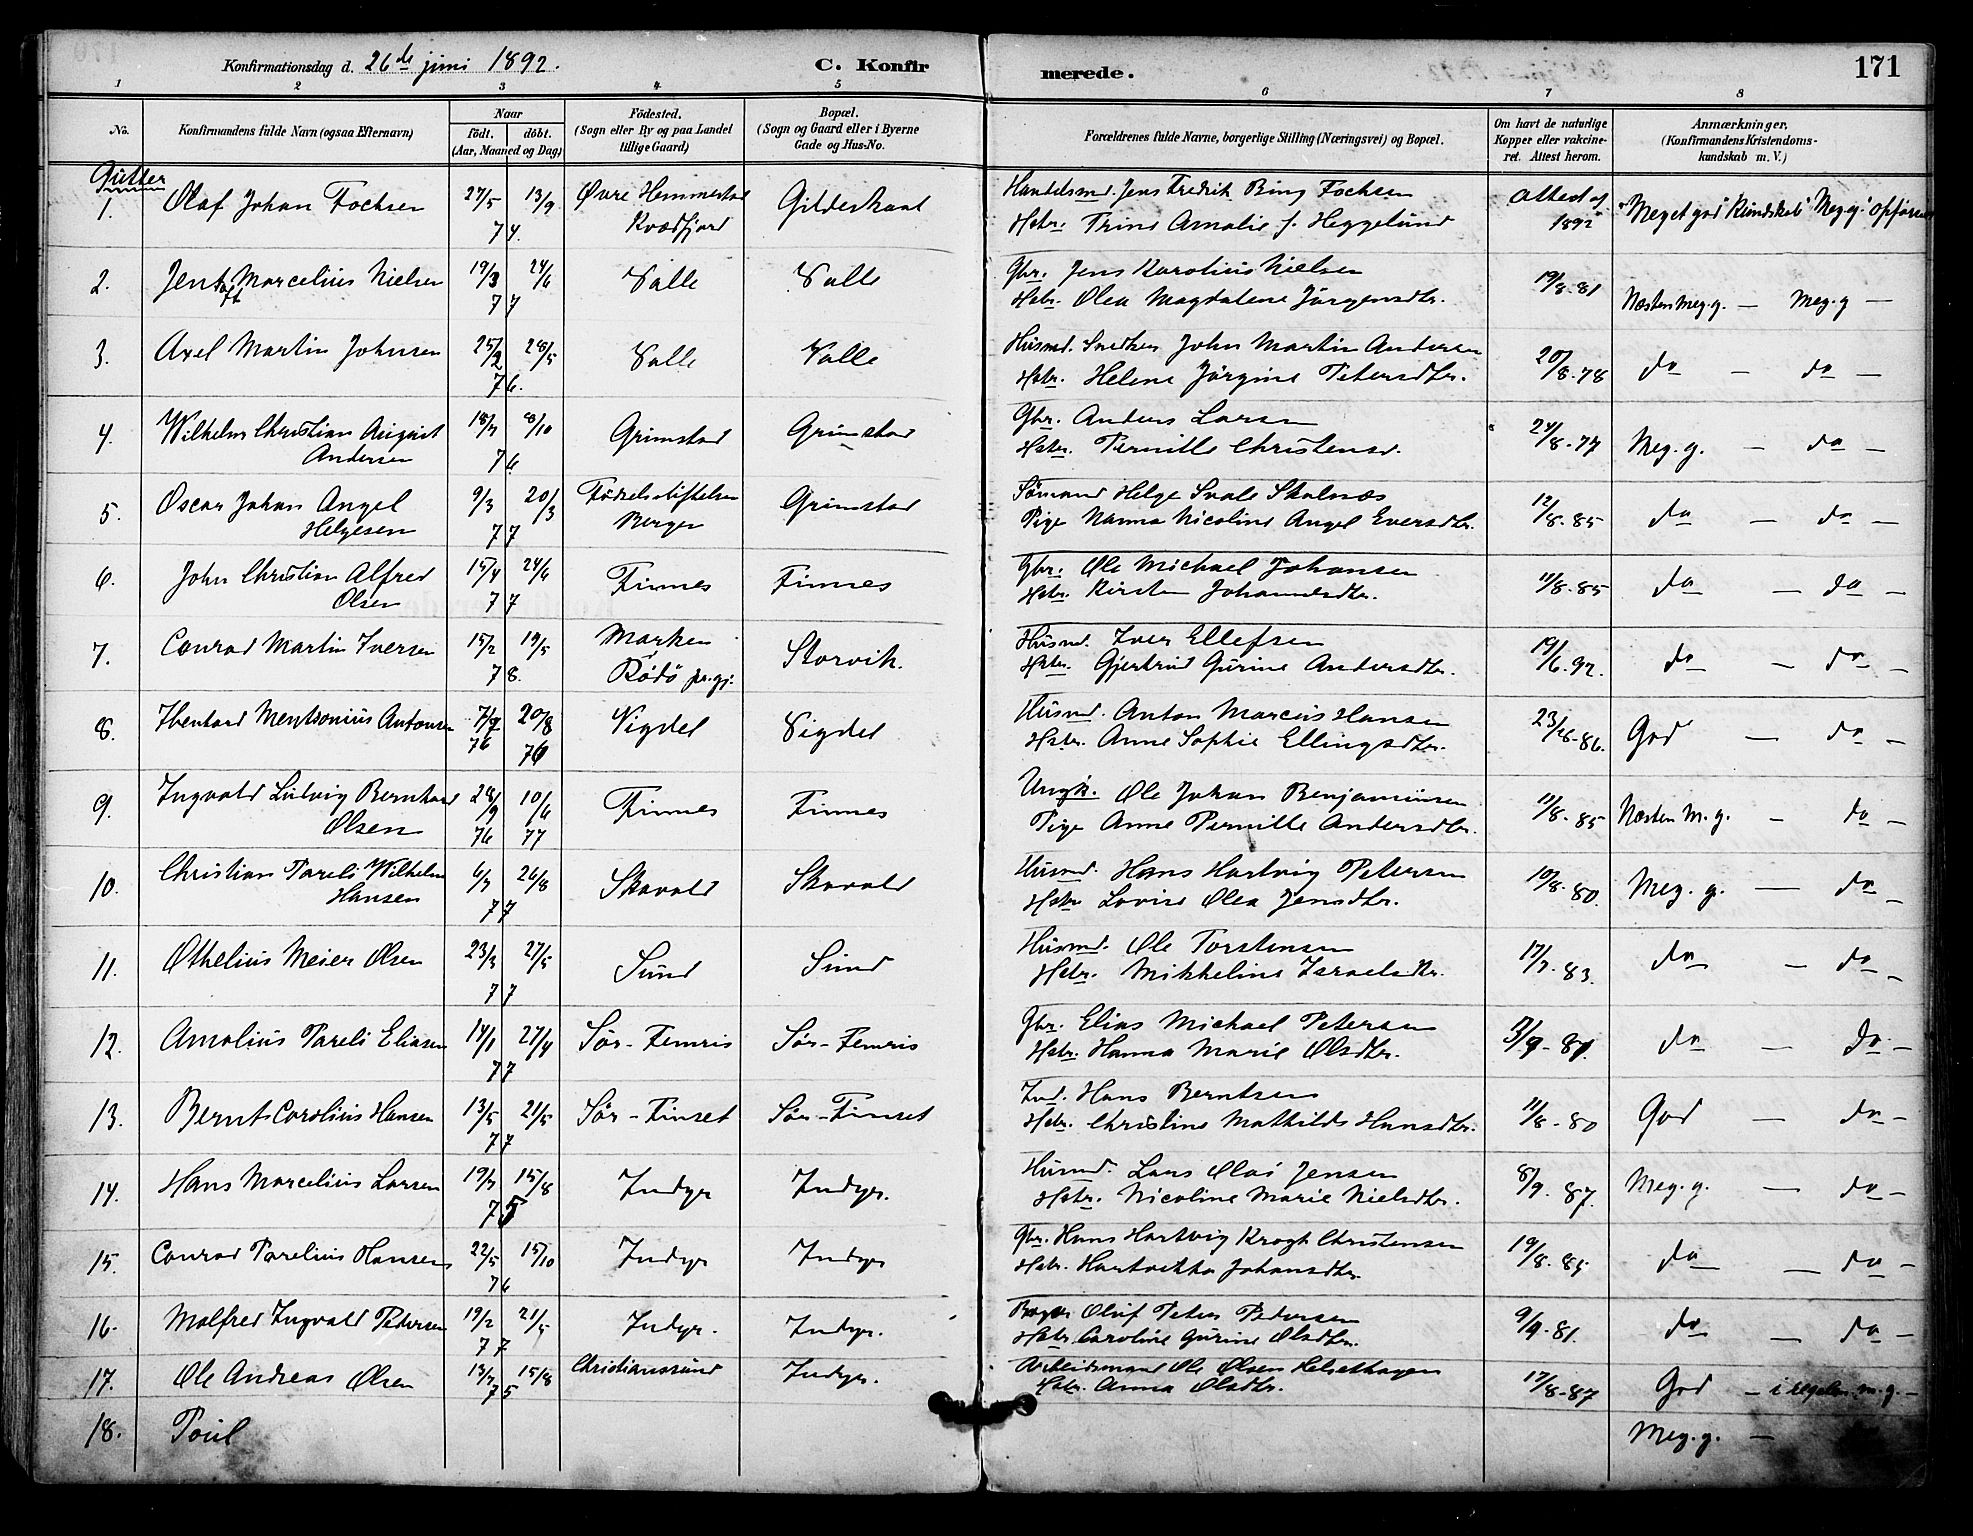 Konfirmationsdag d. 26de juni 1892. C. Konfirmerede. 171
1 2 3 4 5 6 7 8
No. Konfirmandens fulde Navn (ogsaa Efternavn) Naar födt. döbt. (Aar, Maaned og Dag) Födested. (Sogn eller By og paa Landet tillige Gaard) Bopæl. (Sogn og Gaard eller i Byerne Gade og Hus-No. Forældrenes fulde Navne, borgerlige Stilling (Næringsvei) og Bopæl. Om havt de naturlige Kopper eller vakcineret. Attest herom. Anmærkninger, (Konfirmandens Kristendomskundskab m. V.)
Gutter
1. Olaf Johan Fochsen 27/5 13/9 74. Øvre Hemmestad Kvædfjord Gildeskaal Handelsmd. Jens Fredrik Bing Fochsen
Hstr. Trine Amalie f. Heggelund Attest af 1892 Meget god Kundskab Meg. g. opførsel
2. Jentoft Marcelius Nielsen 19/3 24/6 77 Valle Valle Gbr. Jens Karolius Nielsen
Hstr. Olea Magdalene Jörgensdtr. 19/8-81 Næsten meg. g. — meg. g —
3. Axel Martin Johnsen 25/2 28/5 76. Valle Valle Husmd. Snedker John Martin Andersen
Hstr. Helene Jörgine Petersdtr. 20/8-78 do — do —
4. Wilhelm Christian August Andersen 18/7 8/10 76. Grimstad Grimstad Gbr. Anders Larsen
Hstr. Pernille Christensd. 24/8-77 Meg. g. — do —
5. Oscar Johan Angel Helgesen 9/3 20/3 77 Fødselsstiftelsen Bergen Grimstad Sömand Helge Svale Skalnæs
Pige Nanna Nicoline Angel Eversdtr. 12/8-85 do — do —
6. John Christian Alfred Olsen 15/4 24/6 77 Finnes Finnes Gbr. Ole Michael Johansen
Hstr. Kirsten Johannesdtr. 11/8-85 do — do —
7. Conrad Martin Iversen 15/2 19/5 78. Marken Rödö pr.gj. Storvik. Husmd. Iver Ellefsen
Hstr. Gjertrud Gurine Andersdtr. 19/6.92. do — do —
8. Ibenhard Mentsonius Antonsen 76 20/8 76 Vigdel Vigdel Husmd. Anton Marcus Hansen
Hstr. Anne Sophie Ellingsdtr. 23/8-86. God — do —
9. Ingvald Ludvig Bernhard Olsen 28/9 76 10/6 77 Finnes Finnes Ungk. Ole Johan Benjaminsen
Pige Anne Pernille Andersdtr. 11/8-85 Næsten m. g. — do —
10. Christian Pareli Wilhelm Hansen 6/7 26/8 77 Skavold Skavold Husmd. Hans Hartvig Petersen
Hstr Lovise Olea Jensdtr. 10/8-80. Meg. g. — do —
11. Othelius Meier Olsen 23/3 27/5 77 Sund Sund Husmd. Ole Torstensen
Hstr. Mikkeline Israelsdtr. 17/7-83. do — do —
12. Amolius Pareli Eliasen 14/1 27/4 77 Sör-Femris Sör-Femris Gbr. Elias Michael Petersen
Hstr. Hanna Marie Olsdtr. do — do —
13. Bernt Carolius Hansen 13/5 21/5 77 Sör-Finset Sör-Finset Ind. Hans Berntsen
Hstr. Christine Mathilde Hansdtr. 11/8-80 God — do —
14. Hans Marcelius Larsen 19/7 15/8 75 Indyr Indyr. Husmd. Lars Olai Jensen
Hstr. Nicoline Marie Nielsdtr. 8/9. 87. Meg. g. — do —
15. Conrad Parelius Hansen 22/5 15/10 76 Indyr Indyr Gbr. Hans Hartvig Krogh Christensen
Hstr. Hartvikka Johansdtr. 19/8.85 do — do —
16. Malfred Ingvald Pedersen 19/2 21/5 77 Indyr. Indyr. Bager Oluf Peter Pedersen
Hstr. Caroline Gurine Olsdtr. 9/9.81. do — do —
17. Ole Andreas Olsen 13/7 15/8 75 Christianssund Indyr. Arbeidsmand Ole Olsen Helsethagen
Hstr. Anna Olsdtr. 17/8-87 God — i regelen m. g. —
18. Poul Meg. g. —